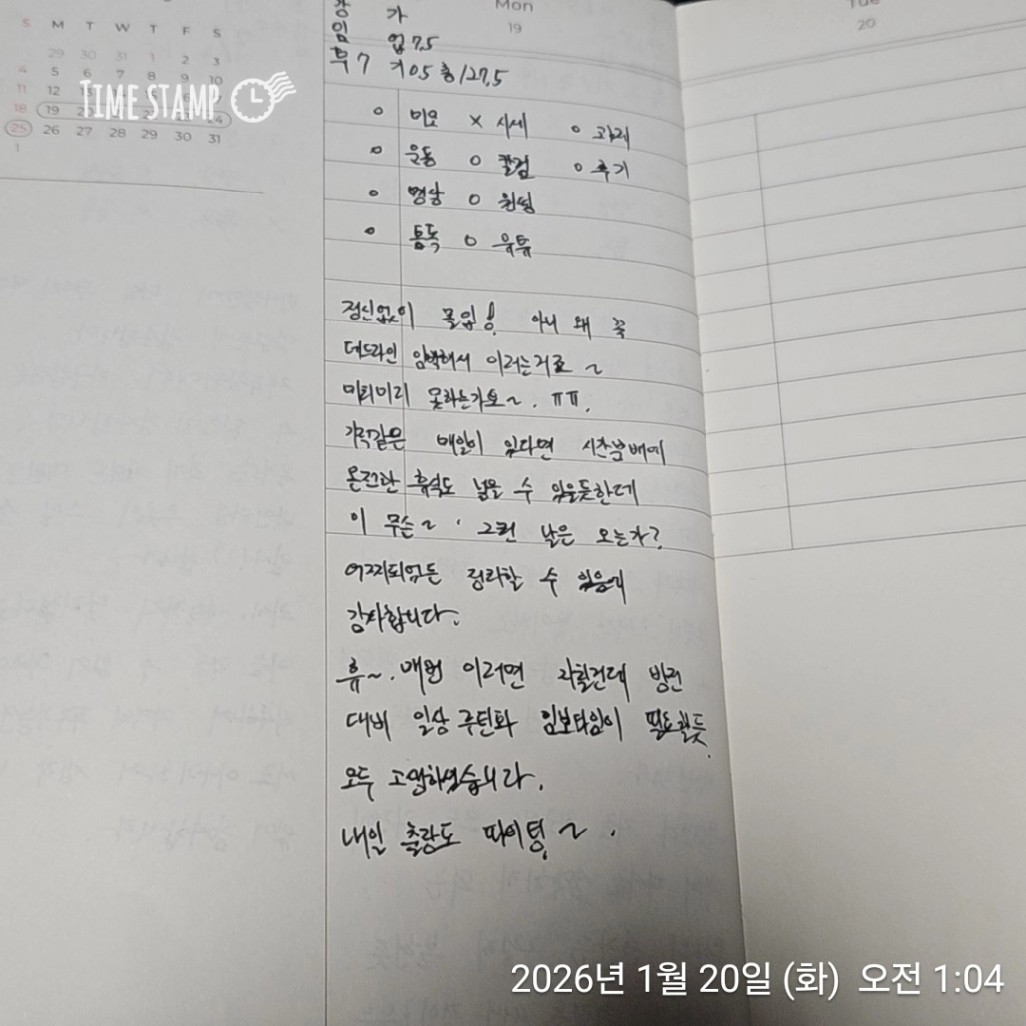 S M T W T F S
29 30 31 1 2 3
4 5 6 7 8 9 10
11 12
18 19 20 24
25 26 27 28 29 30 31
1
TIME STAMP
Mon
19
Tue
20
강 가
임 업 7.5
부 7 기 0.5 총/27.5
o 미모 x 시세 o 과제
o 운동 o 칼럼 o 후기
o 명상 o 원씽
o 통독 o 유튜
정신없이 몰입! 아니 왜 꼭
데드라인 임박해서 이러는거죠 ~
미리미리 못하는가요~. ㅠㅠ.
가락같은 매일이 있다면 시간분배에
온전한 휴식도 넣을 수 있을듯한데
이 무슨~. 그런 날은 오는가?
어찌되었든 정리할 수 있음에
감사합니다.
휴~. 매번 이러면 지칠건데 방전
대비 일상 루틴화 임보타임이 필요할듯.
모두 고생하였습니다.
내일 출장도 파이팅 ~ .
2026년 1월 20일 (화) 오전 1:04